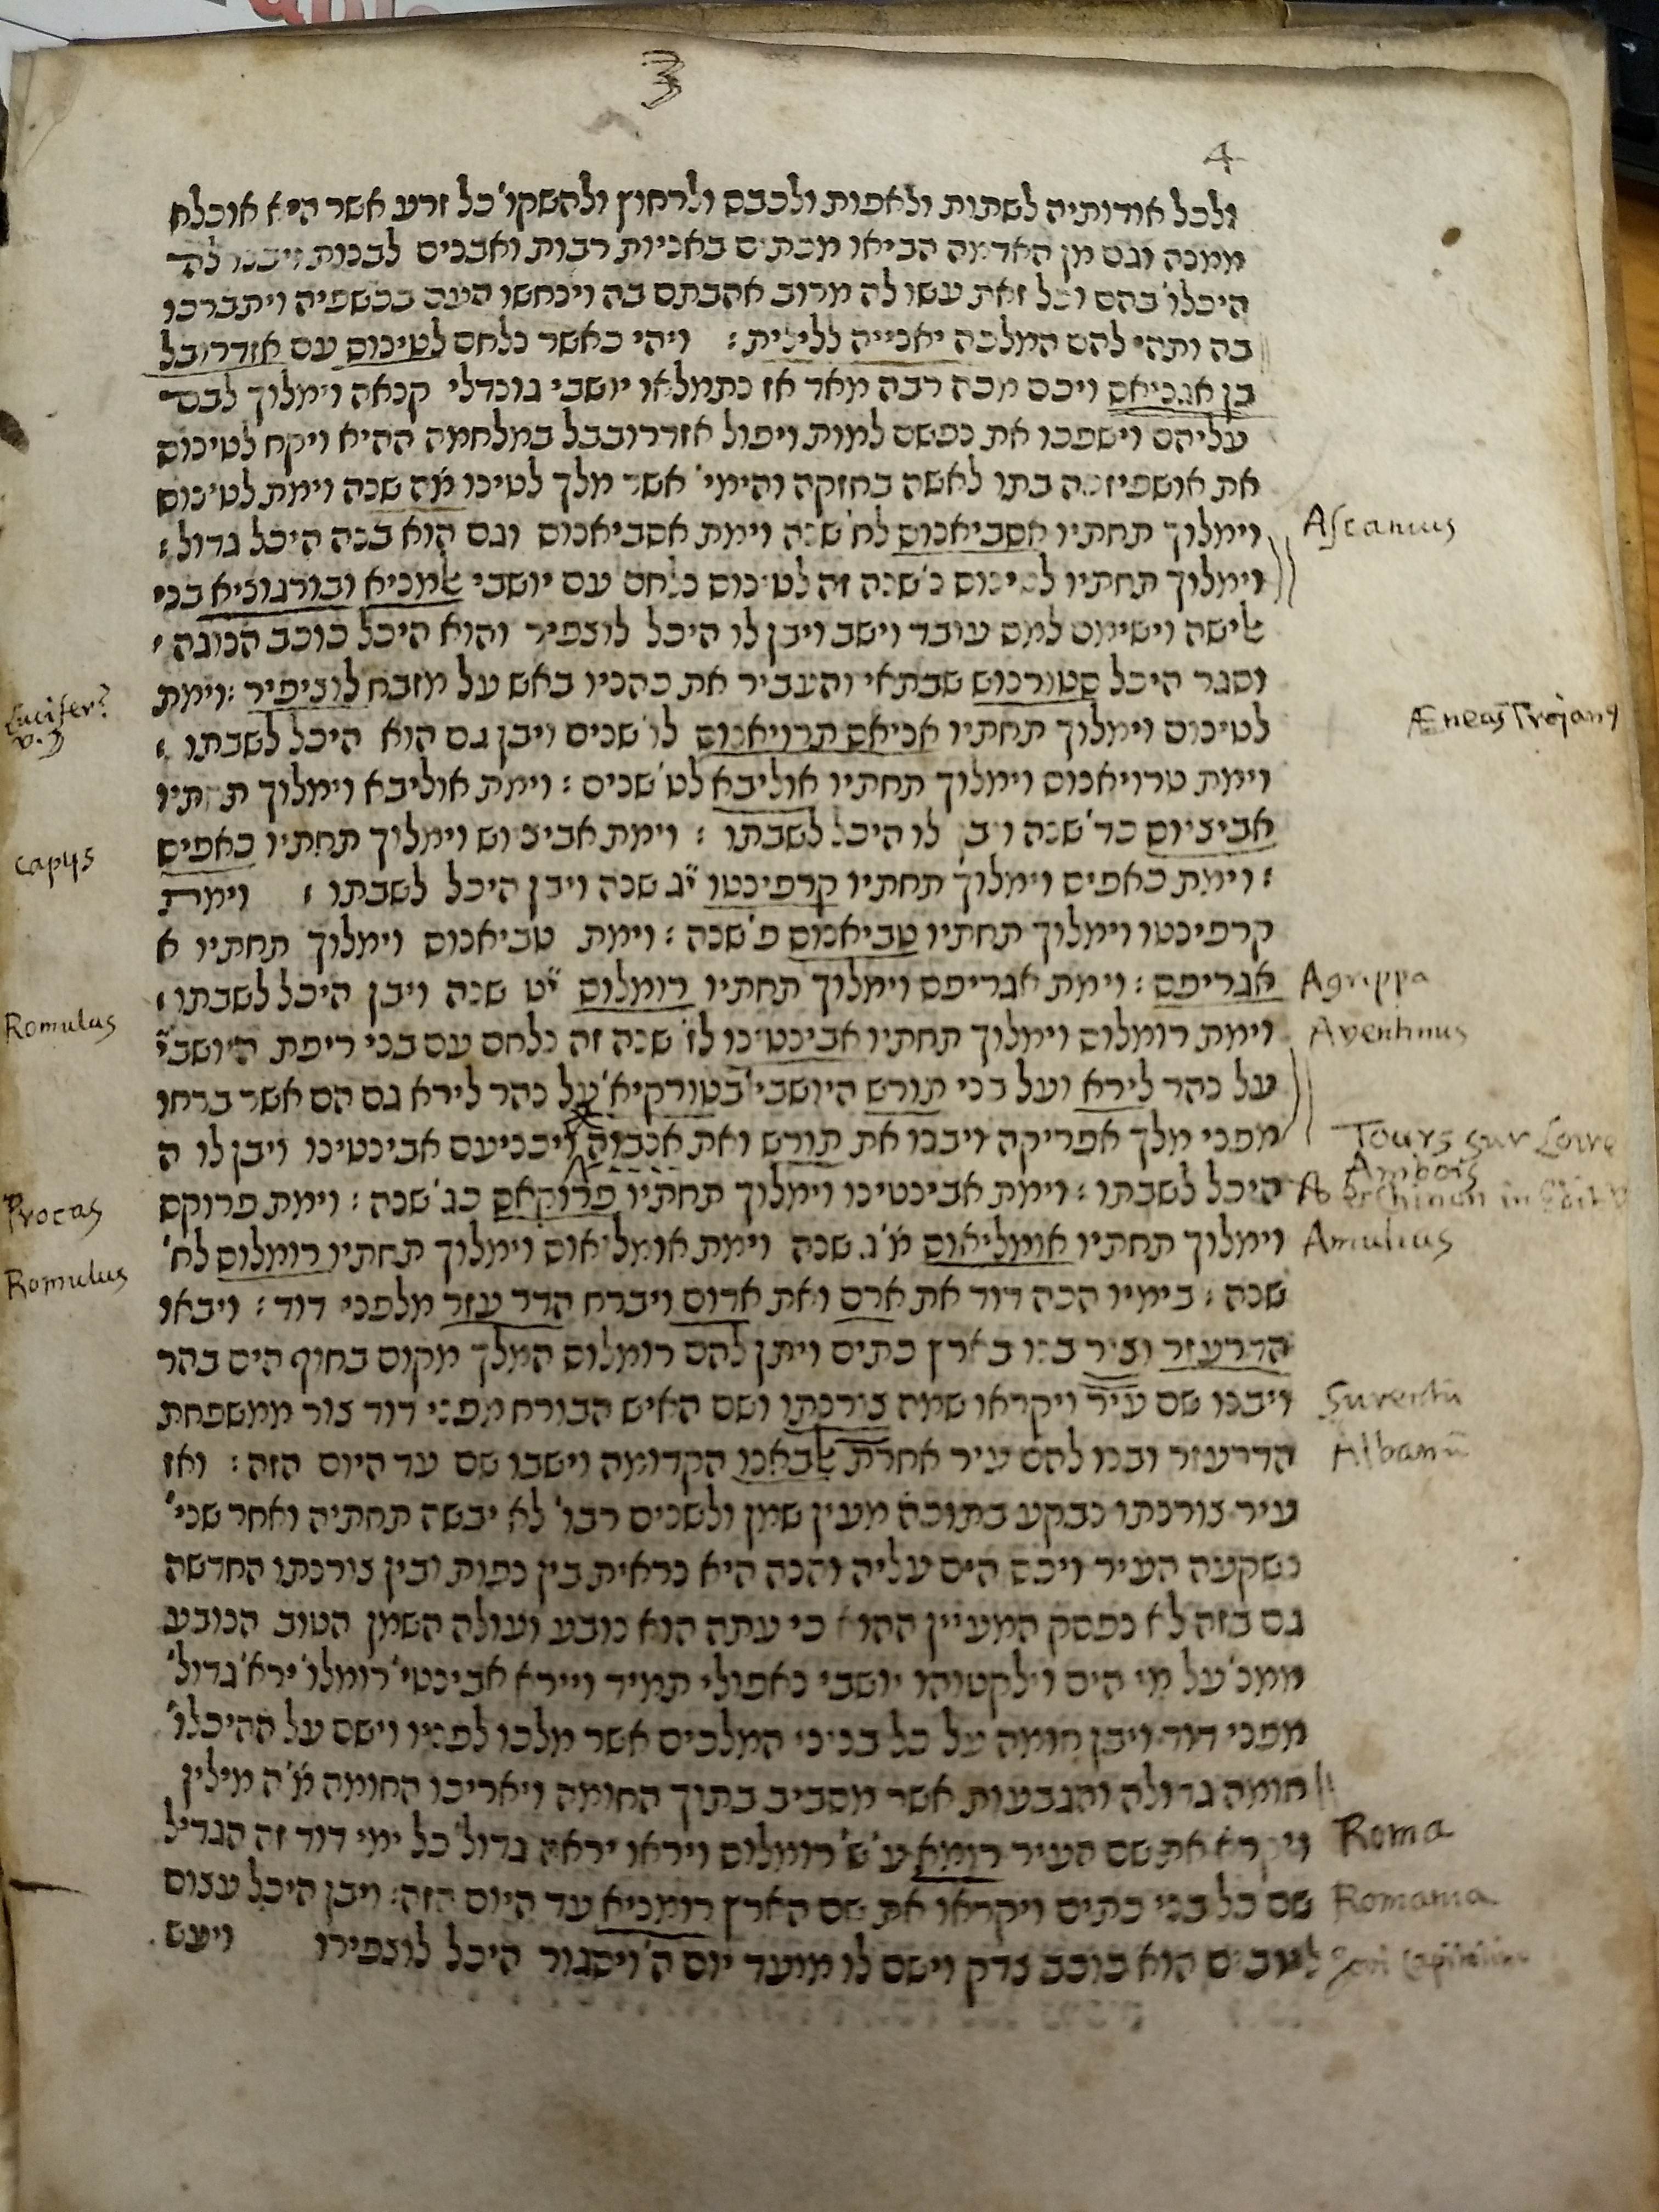 3
4
ולכל אודותיה לשתות ולאפות ולכבס ולרחוץ ולהשקו' כל זרע אשר היא אוכלת
ממנה וגם מן האדמה הביאו מכתים באניות רבות ואבנים לבנות ויבנו לה
היכלו' בהם וכל זאת עשו לה מרוב אהבתם בה וינחשו העם בכשפיה ויתברכו
בה ותהי להם המלכה יאנייה ללילית : ויהי כאשר נלחם לטינוס עם אזדרובל
בן אגניאס ויכם מכה רבה מאד אז נתמלאו יושבי גונדלי קנאה וימלוך לבם
עליהם וישפכו את נפשם למות ויפול אזדרובבל במלחמה ההיא ויקח לטינוס
את אושפיזנה בתו לאשה בחזקה והימי' אשר מלך לטינו מה שנה וימת לטינוס
וימלוך תחתיו אסביאנוס לח' שנה וימת אסביאנוס וגם הוא בנה היכל גדול : Ascanius
וימלוך תחתיו לטינוס נ' שנה זה לטינוס נלחם עם יושבי אלמניא ובורגוניא בני
אלישה וישימם למס עובד וישב ויבן לו היכל לוצפיר והוא היכל כוכב הנוגה
וסגר היכל סטורנוס שבתאי והעביר את כהניו באש על מזבח לוציפיר : וימת
Lucifer?
v. 3
לטינוס וימלוך תחתיו אניאס תרויאנוס לו' שנים ויבן גם הוא היכל לשבתו : Æneas Trojan9
וימת טרויאנוס וימלוך תחתיו אוליבא לט' שנים : וימת אוליבא וימלוך תחתיו
אביציוס כד' שנה ויבן לו היכל לשבתו : וימת אביציוש וימלוך תחתיו כאפיס
capys
: וימת כאפיס וימלוך תחתיו קרפינטו יג שנה ויבן היכל לשבתו : וימת
קרפינטו וימלוך תחתיו טביאנוס פ' שנה : וימת טביאנוס וימלוך תחתיו א
אגריפס : וימת אגריפס וימלוך תחתיו רומלוס יט שנה ויבן היכל לשבתו : Agrippa
Romulus
וימת רומלוס וימלוך תחתיו אבינטינו לז' שנה זה נלחם עם בני ריפת היושבי Aventinus
על נהר לירא ועל בני תורש היושבי' בטורקיא על נהר לירא גם הם אשר ברחו
מפני מלך אפריקה ויבנו את תורש ואת אנבוה ויכניעם אבינטינו ויבן לו ה Tours sur Loire
Ambois
Procas
היכל לשבתו : וימת אבינטינו וימלוך תחתיו פרוקאס כג' שנה : וימת פרוקס
וימלוך תחתיו אומליאוס מ'ג שנה וימת אומליאוס וימלוך תחתיו רומלוס לח' Amulius
Romulus
שנה : בימיו הכה דוד את ארם ואת אדום ויברח הדד עזר מלפני דוד : ויבאו
הדרעזר וציר בנו בארץ כתים ויתן להם רומלוס המלך מקום בחוף הים בהר
ויבנו שם עיר ויקראו שמה צורנתו ושם האיש הבורח מפני דוד צור ממשפחת
הדרעזר ובנו להם עיר אחרת אלבאנו הקדומה וישבו שם עד היום הזה : ואז
עיר צורנתו נבקע בתוכה מעין שמן ולשנים רבו' לא יבשה תחתיה ואחר שני'
נשקעה העיר ויכס הים עליה והנה היא נראית בין נפות ובין צורנתו החדשה
גם בזה לא נפסק המעיין ההוא כי עתה הוא נובע ועולה השמן הטוב הנובע
ממנ' על מי הים וילקטוהו יושבי נאפולי תמיד ויירא אבינטי' רומלו' ירא' גדול'
מפני דוד ויבן חומה על כל בניני המלכים אשר מלכו לפניו וישם על ההיכלו'
חומה גדולה והגבעות אשר מסביב בתוך החומה ויאריכו החומה מ'ה מילין
ויקרא את שם העיר רומא ע'ש' רומלוס ויראו יראה גדול' כל ימי דוד זה הגדיל Roma
שם כל בני כתים ויקראו את שם הארץ רומניא עד היום הזה : ויבן היכל עצום Romania
לעובים הוא כוכב צדק וישם לו מועד יום ה' ויסגור היכל לוצפירו ויעש